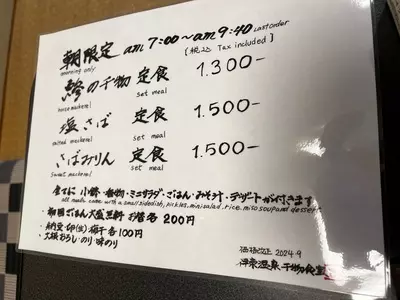 朝限定 am 7:00~am 9:40 Last order
morning only [税込 Tax included]
鯵の干物 定食 1.300-
horse mackerel set meal
塩さば 定食 1.500-
salted mackerel set meal
さばみりん 定食 1.500-
Sweet mackerel set meal
全てに 小鉢・香物・ミニサラダ・ごはん・みそ汁・デザートが付きます
all meals come with a small sidedish, pickles, mini salad, rice, miso soup and dessert
・朝田ごはん大盛 各 200円
・納豆・卵(生)・梅干 各100円
・大根おろし・のり・味のり
価格改正 2024.9
伊東温泉 干物食堂